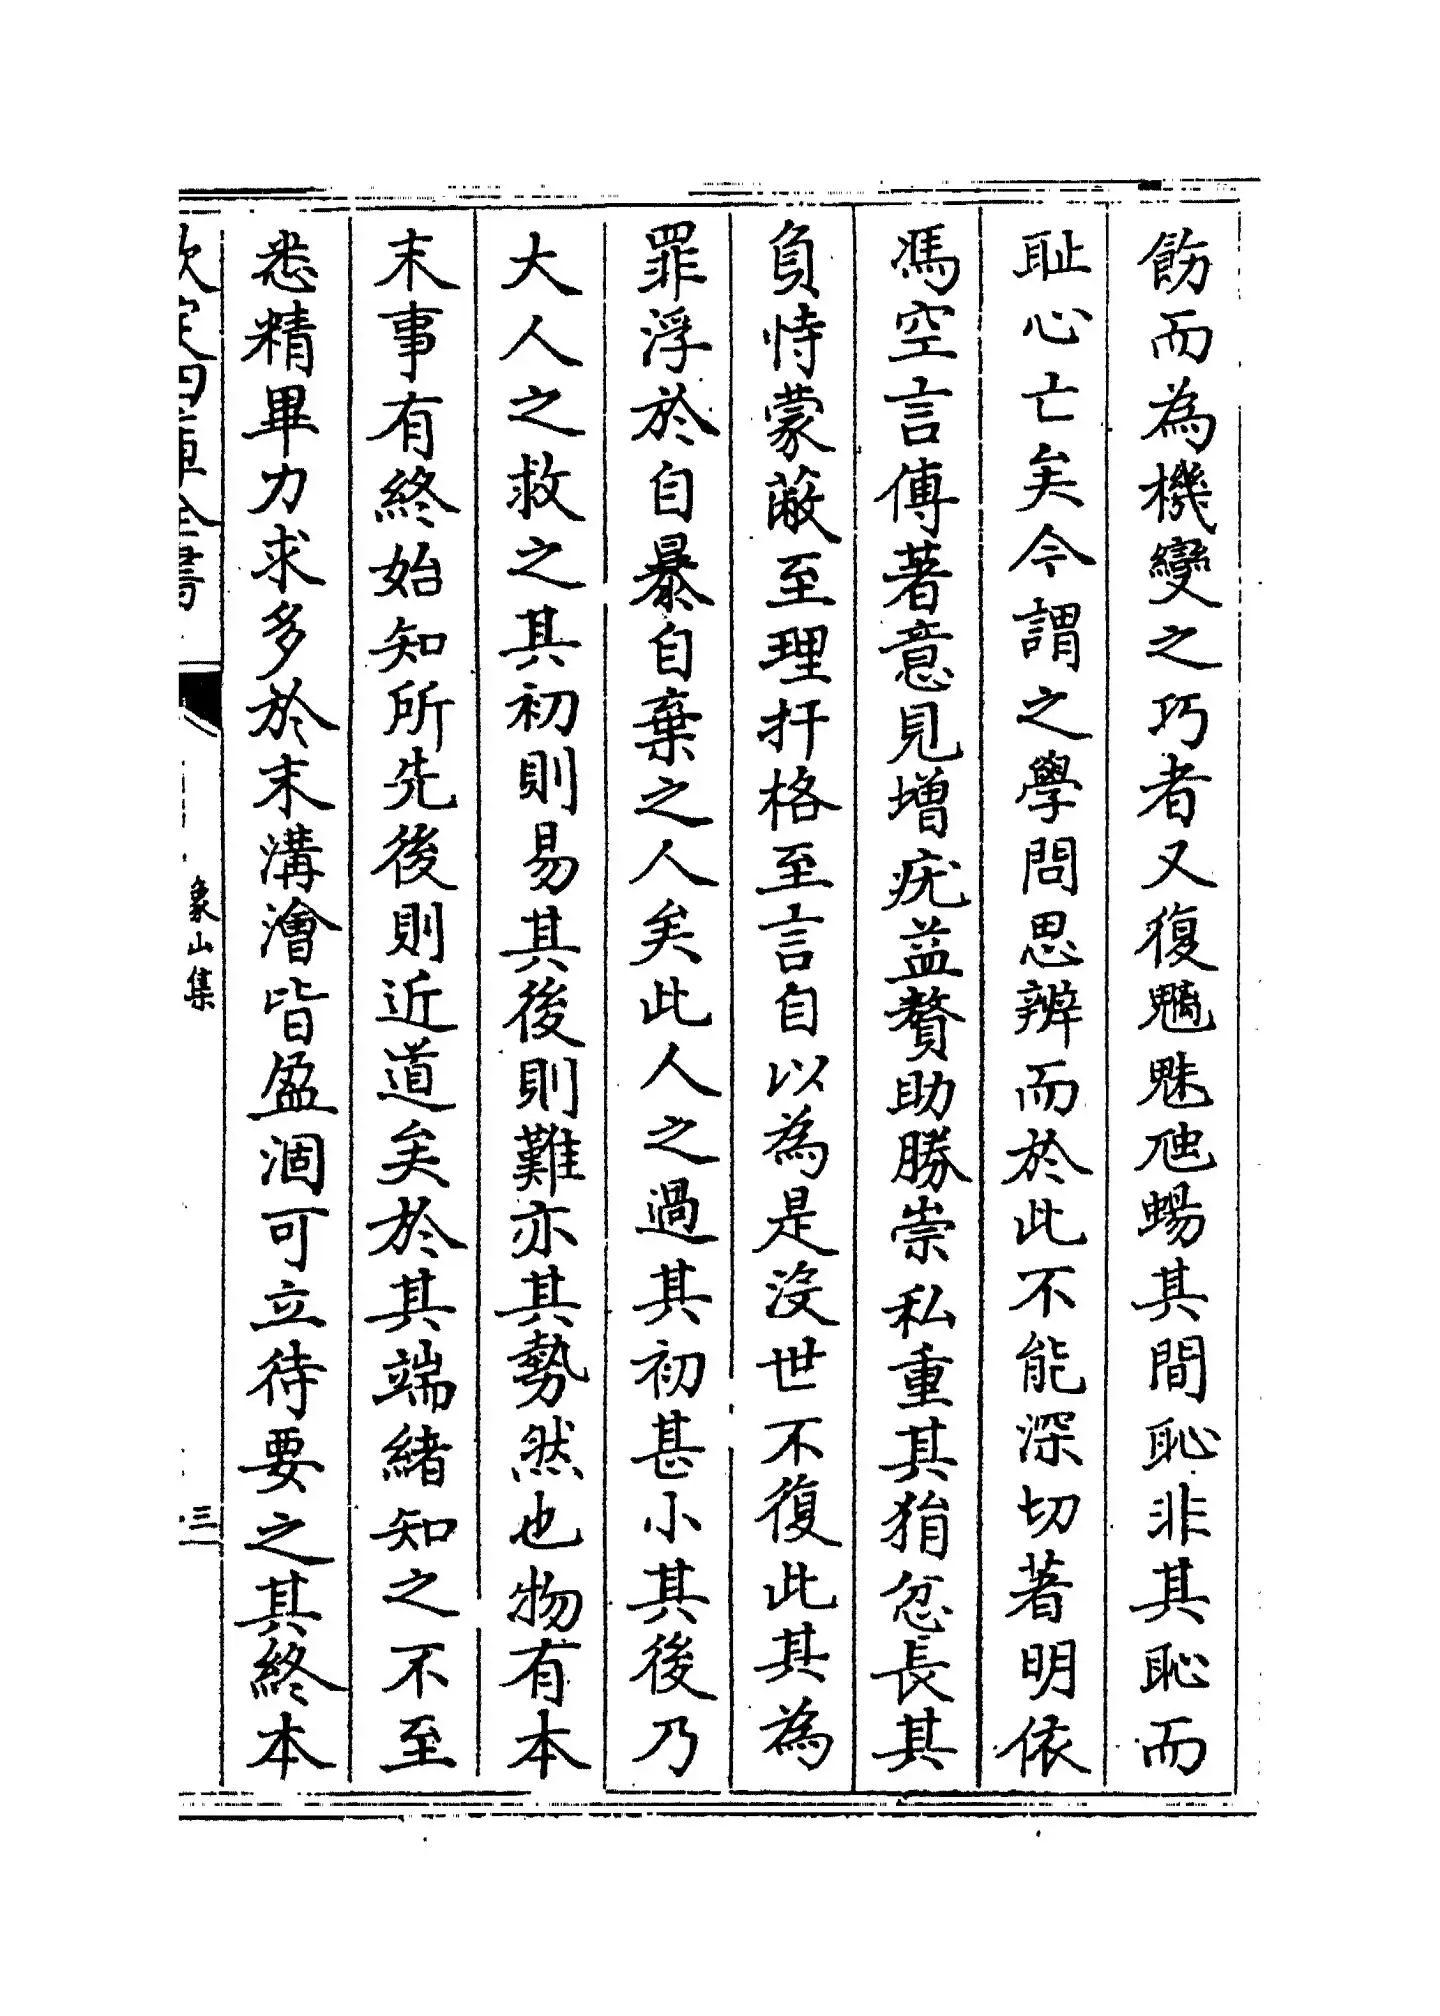 飭而為機變之巧者又復魑魅虺蜴其間恥非其恥而
耻心亡矣今謂之學問思辨而於此不能深切著明依
馮空言傅著意見增疣益贅助勝崇私重其狷忿長其
負恃蒙蔽至理扞格至言自以為是没世不復此其為
罪浮於自暴自棄之人矣此人之過其初甚小其後乃
大人之救之其初則易其後則難亦其勢然也物有本
末事有終始知所先後則近道矣於其端緒知之不至
悉精畢力求多於末溝澮皆盈涸可立待要之其終本
欽定四庫全書
象山集
三